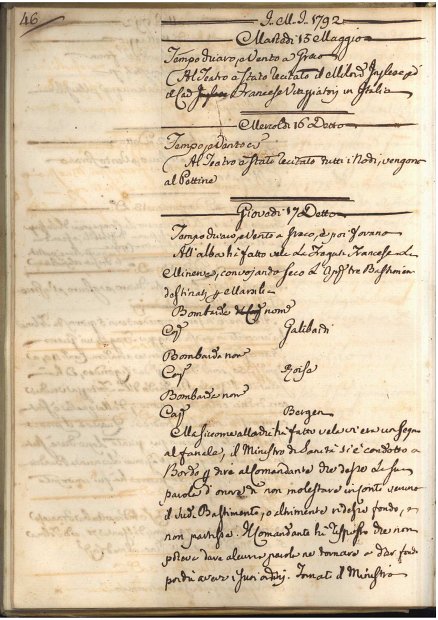 46
J. M. J. 1792
Martedi 15 Maggio
Tempo chiaro, e Vento a Greco
Al Teatro è stato recitato il Milord Inglese, ed
il Cav. Francese Viaggiatori in Italia
Mercoldi 16 Detto
Tempo, e Vento
Al Teatro è stato recitato tutti i Nodi vengono
al Pettine
Giovedi 17 Detto
Tempo chiaro, e Vento a Greco, e poi
All'alba hà fatto vela La Fregata Francese La
Minerva, convojando seco tre Bastimen
destinati p Marsilia
Bombarda nome
Cap Galibardi
Bombarda nome
Cap
Bombarda nome
Cap Bergen
Ma siccome allorchè hà fatto vela vi era un Segno
al fanale, il Ministro di Sanità si è condotto a
Bordo p dire al Comandante che desse La sua
parola d'onore di non molestare in conto veruno
il sud. Bastimento, o altrimenti ridasse fondo, e
non partisse. Il Comandante hà risposto che non
poteva dare alcuna parola ne tornare a dar fondo
perchè aveva i suoi ordini. Tornato il Ministro